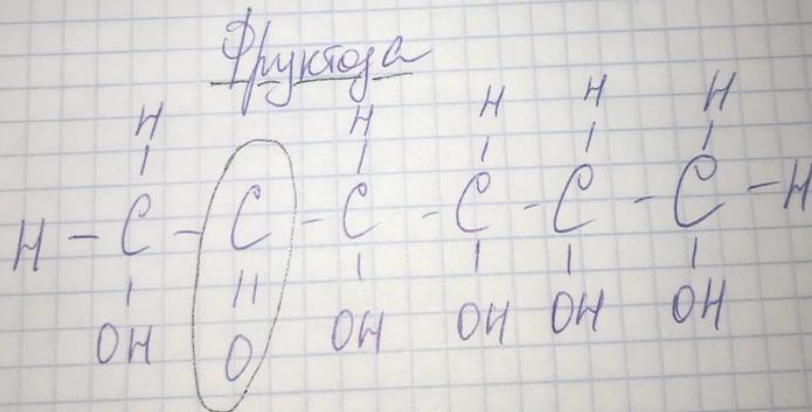 Фруктоза
H H H H H
H - C - C - C - C - C - C - H
OH O OH OH OH OH